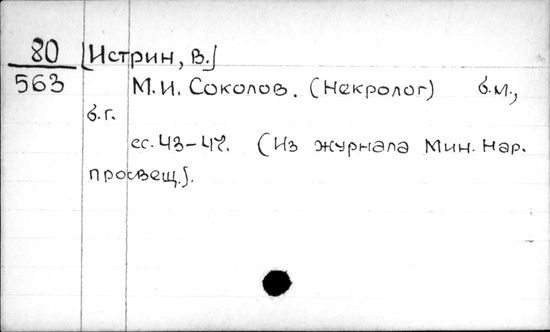 80 [Истрин, В.]
563 М.И. Соколов. (Некролог) б.м.,
б.г.
сс. 43-47. (Из журнала Мин. Нар.
просвещ.).